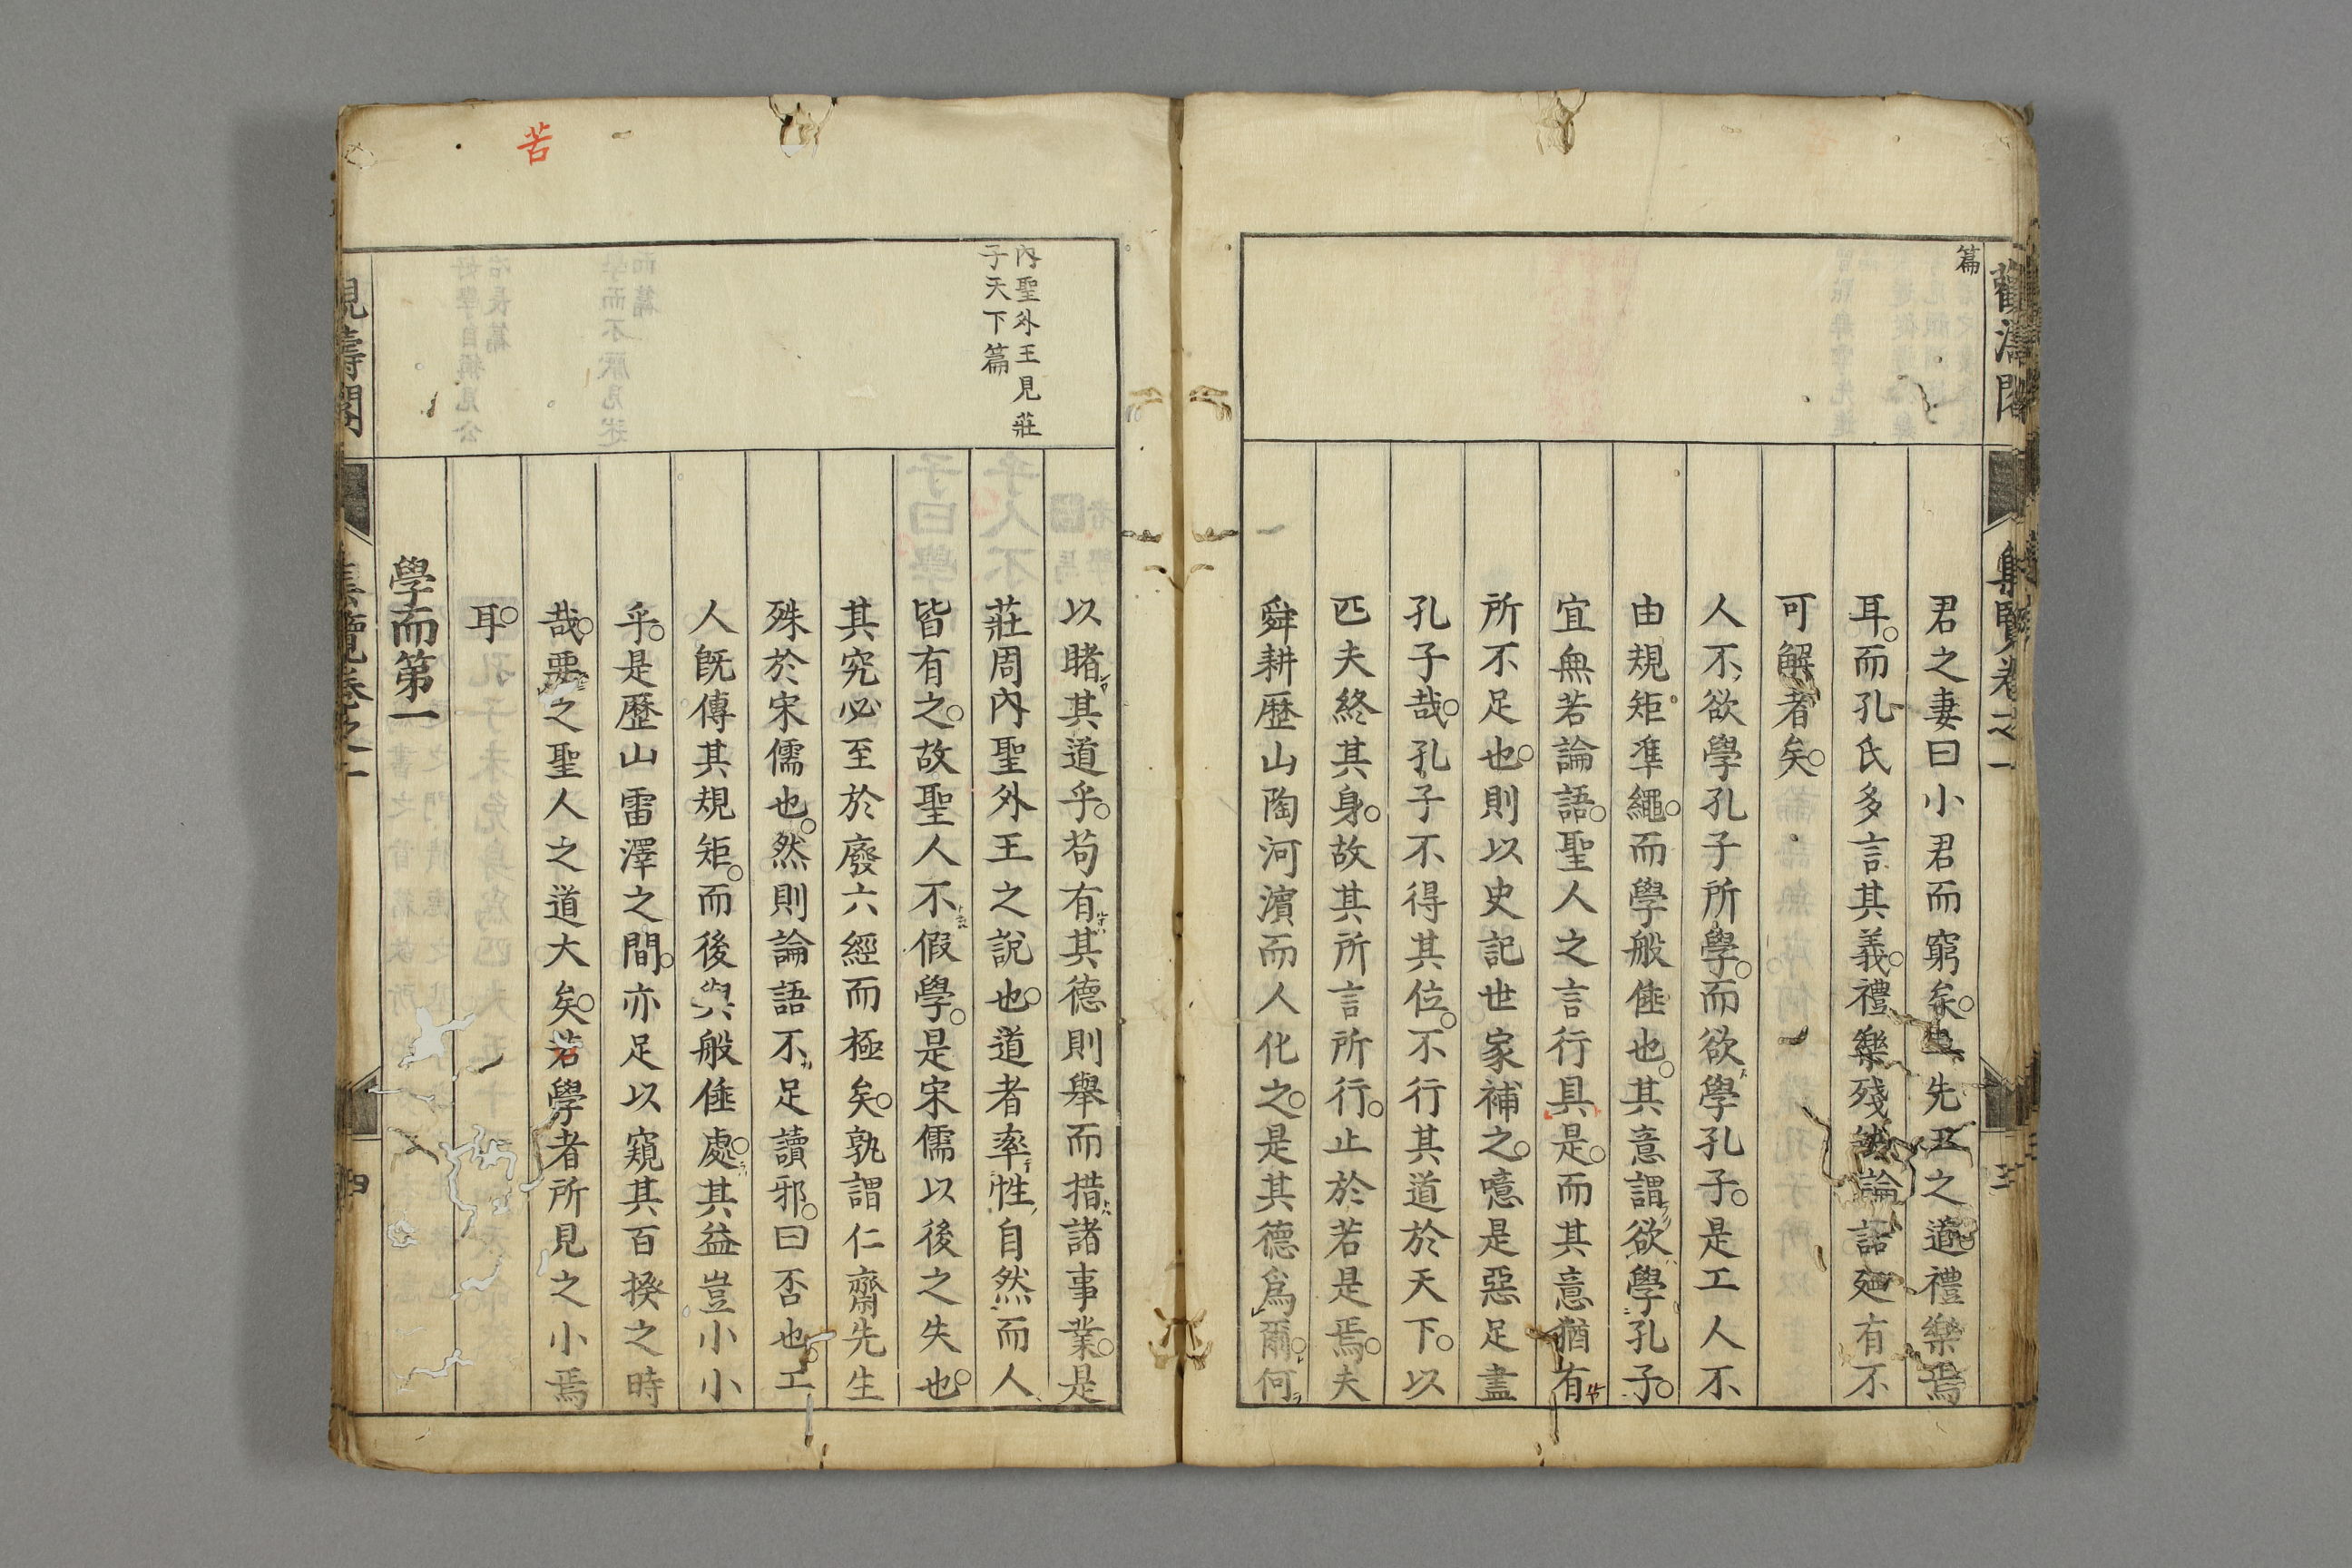 篇
君之妻曰小君而窮矣且先王之道禮樂焉
耳而孔氏多言其義禮樂殘缺論語廼有不
可解者矣
人不欲學孔子所學而欲學孔子是工人不
由規矩準繩而學般倕也其意謂欲學孔子
宜無若論語聖人之言行具是而其意猶有
所不足也則以史記世家補之噫是惡足盡
孔子哉孔子不得其位不行其道於天下以
匹夫終其身故其所言所行止於若是焉夫
舜耕歷山陶河濱而人化之是其德爲爾何
內聖外王見莊
子天下篇
以睹其道乎苟有其德則舉而措諸事業是
莊周內聖外王之說也道者率性自然而人
皆有之故聖人不假學是宋儒以後之失也
其究必至於廢六經而極矣孰謂仁齋先生
殊於宋儒也然則論語不足讀邪曰否也工
人旣傳其規矩而後與般倕處其益豈小小
乎是歷山雷澤之間亦足以窺其百揆之時
哉要之聖人之道大矣若學者所見之小焉
耳
學而第一
苦
觀濤閣
集覽卷之一
四
觀濤閣
集覽卷之一
三